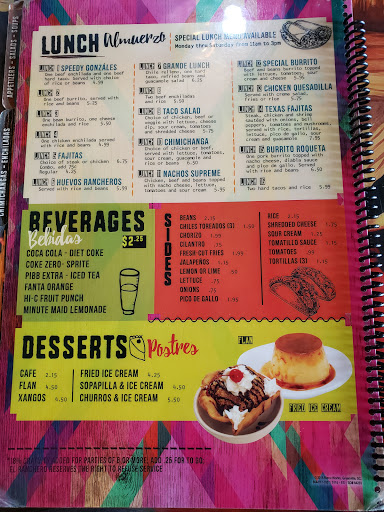 APPETIZERS - SALADS - SOUPS
CHIMICHANGAS - ENCHILADAS
LUNCH Almuerzo
SPECIAL LUNCH MENU AVAILABLE
Monday thru Saturday from 11am to 3pm
LUNCH 1 SPEEDY GONZÁLES
One beef enchilada and one beef hard taco. Served with choice of rice or beans 4.99
LUNCH 2
One beef burrito, served with rice and beans 5.25
LUNCH 3
One bean burrito, one cheese enchilada
LUNCH 4
One chicken enchilada served with rice and beans
LUNCH 5 FAJITAS
Choice of steak or chicken 6.75
Combo, add
Regular 4.25
LUNCH HUEVOS RANCHEROS
Served with rice
LUNCH 6 GRANDE LUNCH
Chile relleno, one hard taco, refried beans and guacamole salad
LUNCH
Two beef enchiladas and rice 5.50
LUNCH TACO SALAD
Choice of chicken, beef or veggie with lettuce, cheese dip, sour cream, tomatoes and shredded cheese 5.75
LUNCH CHIMICHANGA
Choice of chicken or beef, served with lettuce, tomatoes, sour cream, guacamole and rice or beans
LUNCH NACHOS SUPREME
Chicken, beef and beans topped with nacho cheese, lettuce, tomatoes and sour cream
LUNCH SPECIAL BURRITO
Beef and beans burrito topped with lettuce, tomatoes, sour cream and cheese
LUNCH CHICKEN QUESADILLA
Served with creme salad, fries or rice
LUNCH TEXAS FAJITAS
Steak, chicken and shrimp sautéed with onions, bell peppers, tomatoes and mushrooms, served with rice, tortillas, lettuce, pico de gallo, sour cream and guacamole
LUNCH 15 BURRITO ROQUETA
One pork burrito topped with nacho cheese, diabla sauce and pico de gallo. Served with rice and beans
LUNCH
Two hard tacos and rice
BEVERAGES
Bebidas
$2.25
COCA COLA - DIET COKE
COKE ZERO - SPRITE
PIBB EXTRA - ICED TEA
FANTA ORANGE
HI-C FRUIT PUNCH
MINUTE MAID LEMONADE
SIDES
BEANS 2.15
CHILES TOREADOS (3) 1.50
CHORIZO 1.99
CILANTRO .75
FRESH-CUT FRIES 1.99
JALAPEÑOS .75
LEMON OR LIME .50
LETTUCE .75
ONIONS .75
PICO DE GALLO 1.95
RICE 2.15
SHREDDED CHEESE .75
SOUR CREAM .75
TOMATILLO SAUCE
TOMATOES .99
TORTILLAS (3) .75
DESSERTS Postres
CAFE 2.15
FLAN 4.50
XANGOS 4.50
FRIED ICE CREAM 4.25
SOPAPILLA & ICE CREAM 4.50
CHURROS & ICE CREAM 5.50
FLAN
FRIED ICE CREAM
FOR PARTIES OF 8 OR MORE. ADD .25 FOR TO GO.
EL RANCHERO RESERVES THE RIGHT TO REFUSE SERVICE